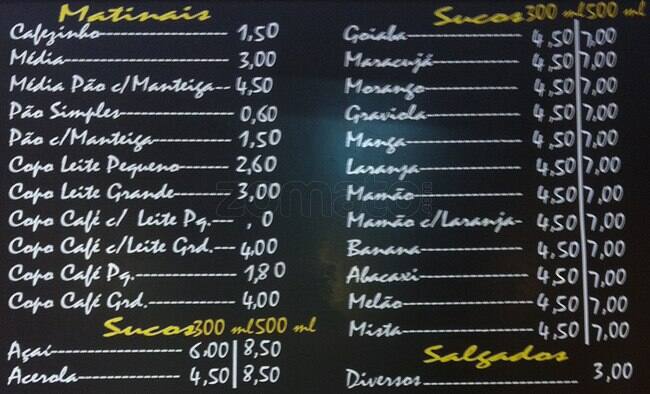 Matinais
Cafezinho 1,50
Média 3,00
Média Pão c/Manteiga 4,50
Pão Simples 0,60
Pão c/Manteiga 1,50
Copo Leite Pequeno 2,60
Copo Leite Grande 3,00
Copo Café c/ Leite Pq. , 0
Copo Café c/Leite Grd. 4,00
Copo Café Pq. 1,80
Copo Café Grd. 4,00
Sucos 300 ml 500 ml
Açaí 6,00 8,50
Acerola 4,50 8,50
Sucos 300 ml 500 ml
Goiaba 4,50 7,00
Maracujá 4,50 7,00
Morango 4,50 7,00
Graviola 4,50 7,00
Manga 4,50 7,00
Laranja 4,50 7,00
Mamão 4,50 7,00
Mamão c/Laranja 4,50 7,00
Banana 4,50 7,00
Abacaxi 4,50 7,00
Melão 4,50 7,00
Mista 4,50 7,00
Salgados
Diversos 3,00
zomato